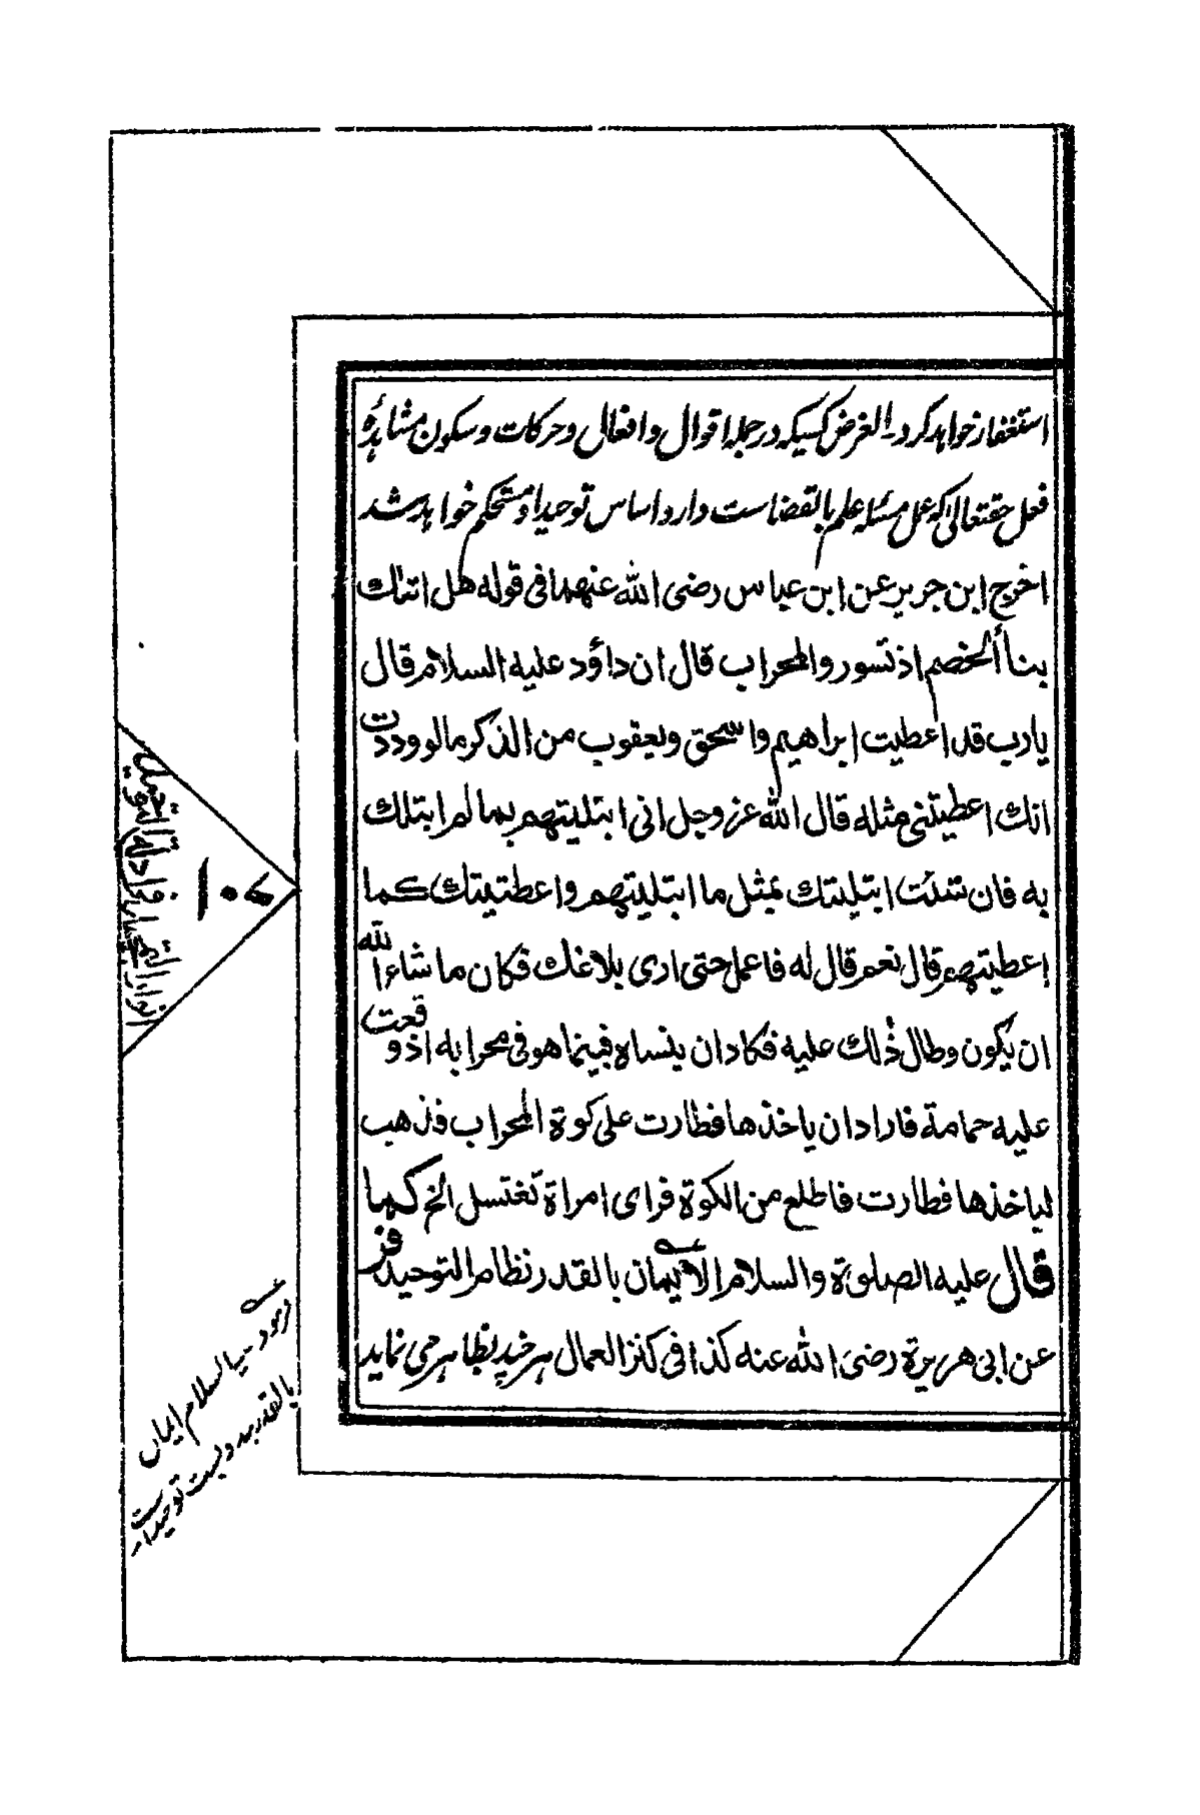 استغفار خواهد کرد۔ الغرض کسیکه در جمله اقوال و افعال و حرکات و سکون مشاہدۂ
فعل حقتعالیٰ که عمل مسئله علم بالقضاست دارد اساس توحید او مستحکم خواہد شد
اخرج ابن جریر عن ابن عباس رضی الله عنهما فی قوله هل اتٰك
بنبأ الخصم اذ تسوروا المحراب قال ان داؤد علیه السلام قال
یارب قد اعطیت ابراهیم واسحٰق ویعقوب من الذکر مالو وددت
انك اعطیتنی مثله قال الله عز وجل انی ابتلیتهم بما لم ابتلك
به فان شئت ابتلیتك بمثل ما ابتلیتهم واعطتیتك کما
اعطیتهم قال نعم قال له فاعمل حتی اری بلاءك فکان ماشاء الله
ان یکون وطال ذٰلك علیه فکادان ینساه فبینما هو فی محرابه اذ وقعت
علیه حمامة فارادان یاخذها فطارت علی کوة المحراب فذهب
لیاخذها فطارت فاطلع من الکوة فرای امراة تغتسل الخ کما
قال علیه الصلوة والسلام الایمان بالقدر نظام التوحید فر
عن ابی هریرة رضی الله عنه کذا فی کنز العمال هر چند بظاہر می نماید
۱۰۶
فرمود
السلام ایمان
بالقدر
توحید است